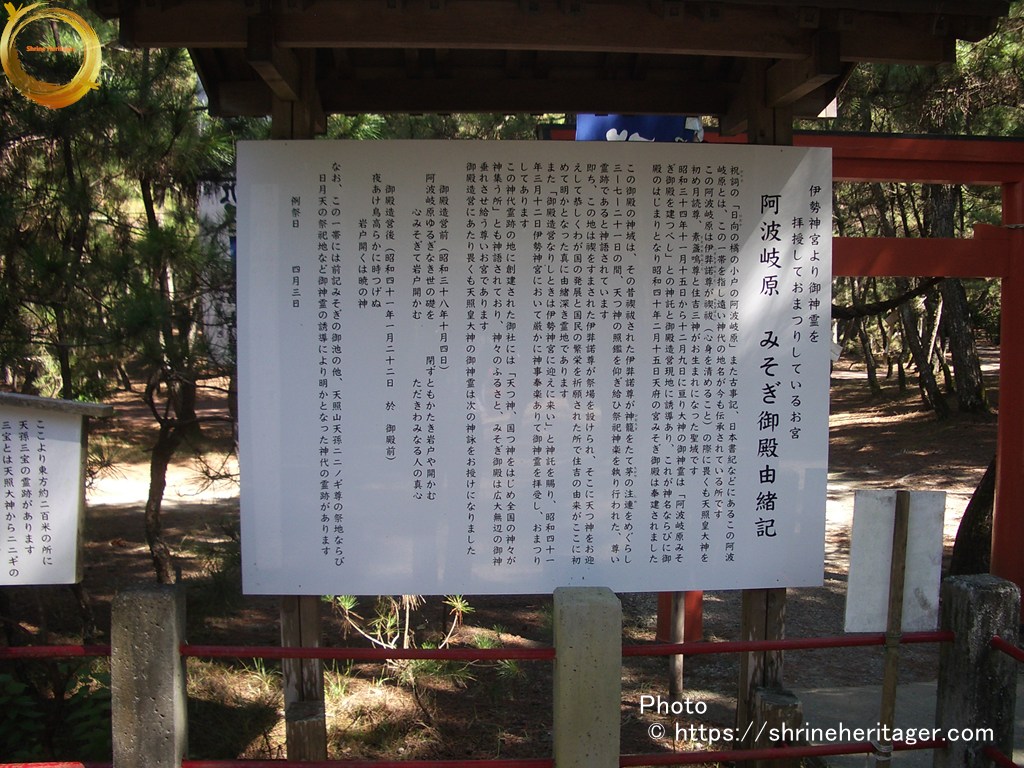 伊勢神宮より御神霊を
拝授しておまつりしているお宮
阿波岐原 みそぎ御殿由緒記
祝詞の「日向の橘の小戸の阿波岐原」また古事記、日本書紀などにあるこの阿波
岐原とは、この一帯を指し遠い神代の地名が今も伝承されている所です
この阿波岐原は伊弉諾尊が禊祓(心身を清めること)の際に畏くも天照皇大神を
初め月読尊、素盞嗚尊と住吉三神がお生まれになった聖域です
昭和三十四年十一月十五日から十二月九日に亘り大神の御神霊は「阿波岐原みそ
ぎ御殿を建つべし」との神託と御殿造営現地に誘導あり、これが神名ならびに御
殿のはじまりとなり昭和四十年二月十五日天府の宮みそぎ御殿は奉建されました
この御殿の神域は、その昔禊祓された伊弉諾尊が神籠をたて茅の注連をめぐらし
三―七―二十一日の間、天つ神の照鑑を仰ぎ給ひ祭祀神楽を執り行われた、尊い
霊跡であると神語されています
即ち、この地は禊をすまされた伊弉諾尊が祭場を設けられ、そこに天つ神をお迎
えして恭しくわが国の発展と国民の繁栄を祈願された所で住吉の由来がここに初
めて明かとなった真に由緒深き霊地であります
また「御殿造営なりしときは伊勢神宮に迎えに来い」と神託を賜り、昭和四十一
年三月十二日伊勢神宮において厳かに神事奉楽ありて御神霊を拝受し、おまつり
してあります
この神代霊跡の地に創建された御社には「天つ神、国つ神をはじめ全国の神々が
神集う所」とも神語されており、神々のふるさと、みそぎ御殿は広大無辺の御神
垂れさせ給う尊いお宮であります
御殿造営にあたり畏くも天照皇大神の御神霊は次の神詠をお授けになりました
御殿造営前(昭和三十八年十月四日)
阿波岐原ゆるぎなき世の礎を 閉すともかたき岩戸や開かむ
心みそぎて岩戸開かむ ただきわみなる人の真心
御殿造営後(昭和四十一年一月二十二日 於 御殿前)
夜あけ鳥高らかに時つげぬ
岩戸開くは暁の神
なお、この一帯には前記みそぎの御池の他、天照山天孫ニニノギ尊の祭地ならび
日月天の祭祀地など御神霊の誘導により明かとなった神代の霊跡があります
例祭日 四月三日
ここより東方約二百米の所に
天孫三宝の霊跡があります
三宝とは天照大神からニニギの
Shrine Heritager
Photo
© https://shrineheritager.com